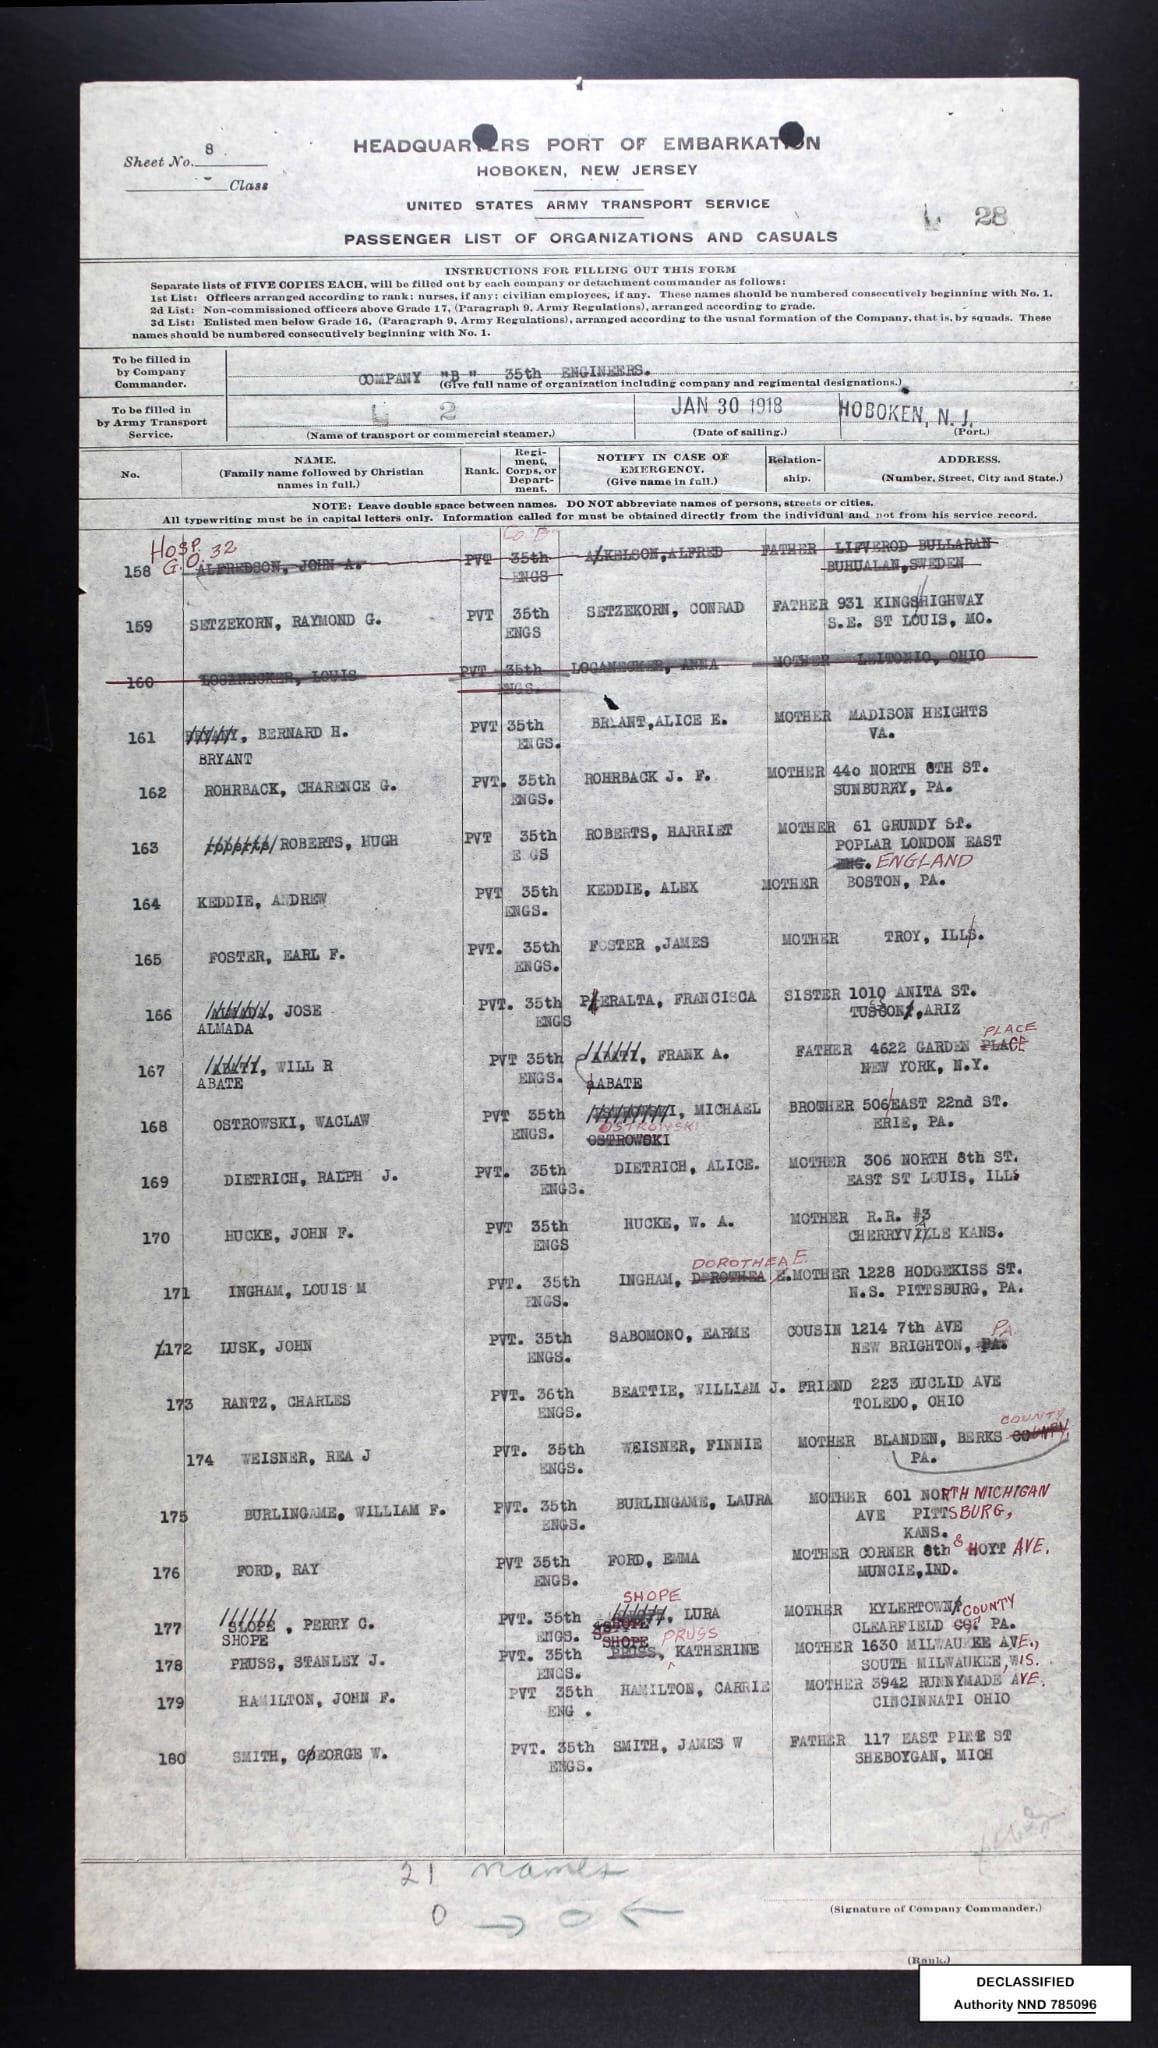 Sheet No. 8
Class
HEADQUARTERS PORT OF EMBARKATION
HOBOKEN, NEW JERSEY
UNITED STATES ARMY TRANSPORT SERVICE
28
PASSENGER LIST OF ORGANIZATIONS AND CASUALS
INSTRUCTIONS FOR FILLING OUT THIS FORM
Separate lists of FIVE COPIES EACH, will be filled out by each company or detachment commander as follows:
1st List: Officers arranged according to rank; nurses, if any; civilian employees, if any. These names should be numbered consecutively beginning with No. 1.
2d List: Non-commissioned officers above Grade 17, (Paragraph 9, Army Regulations), arranged according to grade.
3d List: Enlisted men below Grade 16, (Paragraph 9, Army Regulations), arranged according to the usual formation of the Company, that is, by squads. These
names should be numbered consecutively beginning with No. 1.
To be filled in
by Company
Commander.
COMPANY "B" 35th ENGINEERS.
(Give full name of organization including company and regimental designations.)
To be filled in
by Army Transport
Service.
2
JAN 30 1918
HOBOKEN, N. J.
(Name of transport or commercial steamer.)
(Date of sailing.)
(Port.)
No.
NAME.
(Family name followed by Christian
names in full.)
Rank.
Regi-
ment,
Corps, or
Depart-
ment.
NOTIFY IN CASE OF
EMERGENCY.
(Give name in full.)
Relation-
ship.
ADDRESS.
(Number, Street, City and State.)
NOTE: Leave double space between names. DO NOT abbreviate names of persons, streets or cities.
All typewriting must be in capital letters only. Information called for must be obtained directly from the individual and not from his service record.
HOSP.
G.O. 32
158 ALFREDSON, JOHN A. PVT 35th ALKELSON, ALFRED FATHER LIFVEROD BULLARAN
ENGS BUHUALAN, SWEDEN
159 SETZEKORN, RAYMOND G. PVT 35th SETZEKORN, CONRAD FATHER 931 KINGSHIGHWAY
ENGS S.E. ST LOUIS, MO.
160 LOGANECKER, LOUIS PVT 35th LOGANECKER, ANNA MOTHER LEITONIO, OHIO
ENGS.
161 BERNARD H. PVT 35th BRYANT, ALICE E. MOTHER MADISON HEIGHTS
BRYANT ENGS. VA.
162 ROHRBACK, CHARENCE G. PVT. 35th ROHRBACK J. F. MOTHER 440 NORTH 8TH ST.
ENGS. SUNBURRY, PA.
163 roberts/ ROBERTS, HUGH PVT 35th ROBERTS, HARRIET MOTHER 61 GRUNDY ST.
E GS POPLAR LONDON EAST
ENG. ENGLAND
164 KEDDIE, ANDREW PVT 35th KEDDIE, ALEX MOTHER BOSTON, PA.
ENGS.
165 FOSTER, EARL F. PVT. 35th FOSTER ,JAMES MOTHER TROY, ILLS.
ENGS.
166 JOSE PVT. 35th PERALTA, FRANCISCA SISTER 1010 ANITA ST.
ALMADA ENGS TUSSON, ARIZ
167 WILL R PVT 35th FRANK A. FATHER 4622 GARDEN PLACE PLACE
ABATE ENGS. ABATE NEW YORK, N.Y.
168 OSTROWSKI, WACLAW PVT 35th MICHAEL BROTHER 506 EAST 22nd ST.
ENGS. OSTROWSKI OSTROWSKI ERIE, PA.
169 DIETRICH, RALPH J. PVT. 35th DIETRICH, ALICE. MOTHER 306 NORTH 8th ST.
ENGS. EAST ST LOUIS, ILLS
170 HUCKE, JOHN F. PVT 35th HUCKE, W. A. MOTHER R.R. #3
ENGS CHERRYVILLE KANS.
DOROTHEA E.
171 INGHAM, LOUIS M PVT. 35th INGHAM, DEROTHEA E. MOTHER 1228 HODGEKISS ST.
ENGS. N.S. PITTSBURG, PA.
172 LUSK, JOHN PVT. 35th SABOMONO, EARME COUSIN 1214 7th AVE
ENGS. NEW BRIGHTON, PA. PA
173 RANTZ, CHARLES PVT. 36th BEATTIE, WILLIAM J. FRIEND 223 EUCLID AVE
ENGS. TOLEDO, OHIO
174 WEISNER, REA J PVT. 35th WEISNER, FINNIE MOTHER BLANDEN, BERKS COUNTY COUNTY
ENGS. PA.
175 BURLINGAME, WILLIAM F. PVT. 35th BURLINGAME, LAURA MOTHER 601 NORTH MICHIGAN
ENGS. AVE PITTSBURG,
KANS.
176 FORD, RAY PVT 35th FORD, EMMA MOTHER CORNER 8th & HOYT AVE.
ENGS. MUNCIE, IND.
SHOPE
177 SLOPE, PERRY C. PVT. 35th LURA MOTHER KYLERTOWN COUNTY
SHOPE ENGS. SHOPE CLEARFIELD CO. PA.
178 PRUSS, STANLEY J. PVT. 35th PRUSS, PRUSS KATHERINE MOTHER 1630 MILWAUKEE AVE.,
ENGS. SOUTH MILWAUKEE, WIS.
179 HAMILTON, JOHN F. PVT 35th HAMILTON, CARRIE MOTHER 3942 RUNNYMADE AVE.
ENG . CINCINNATI OHIO
180 SMITH, GEORGE W. PVT. 35th SMITH, JAMES W FATHER 117 EAST PINE ST
ENGS. SHEBOYGAN, MICH
21 names
0 → 0 ←
(Signature of Company Commander.)
(Rank.)
DECLASSIFIED
Authority NND 785096